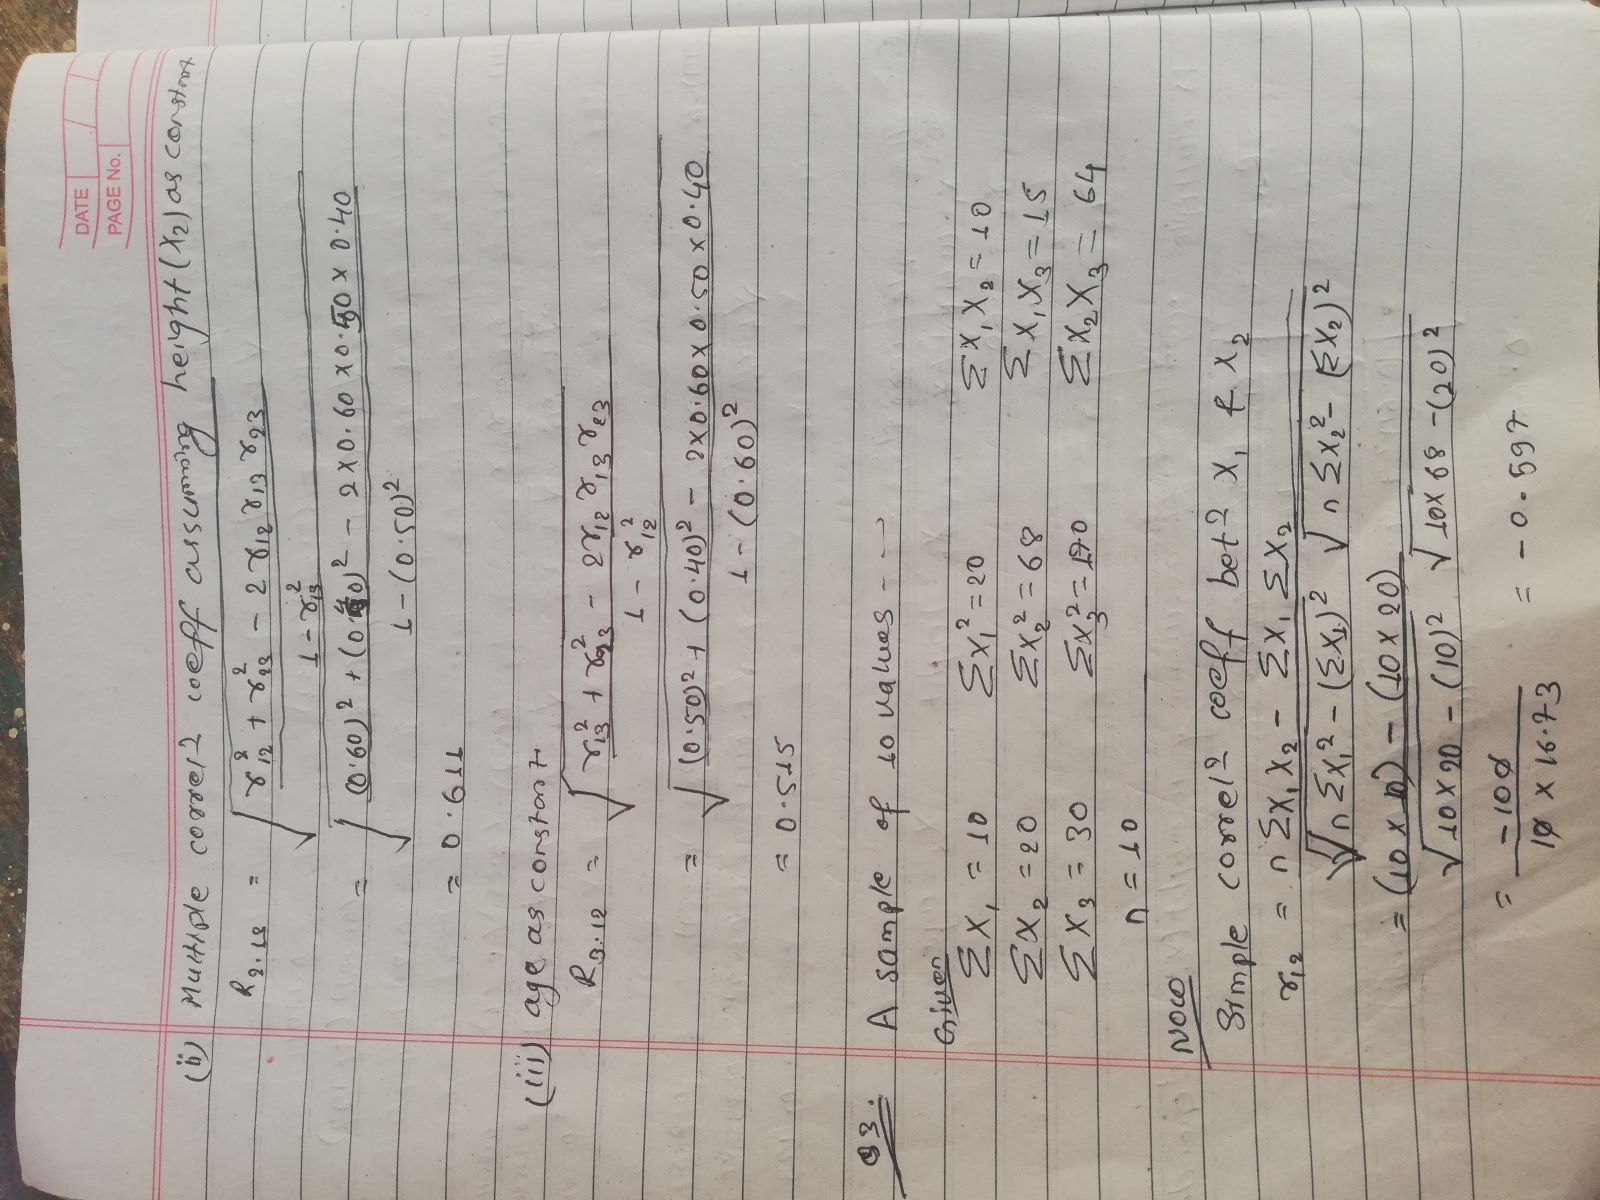 DATE
PAGE No.
(ii) Multiple correl? coeff assuming height (X2) as constant
R2.13 = √ r12² + r23² - 2 r12 r13 r23
1 - r13²
= √ (0.60)² + (0.40)² - 2 x 0.60 x 0.50 x 0.40
1 - (0.50)²
= 0.611
(iii) age as constant
R3.12 = √ r13² + r23² - 2r12 r13 r23
1 - r12²
= √ (0.50)² + (0.40)² - 2x0.60x0.50x0.40
1 - (0.60)²
= 0.515
Q3. A sample of 10 values ---
Given
ΣX1 = 10 ΣX1² = 20 ΣX1X2 = 10
ΣX2 = 20 ΣX2² = 68 ΣX1X3 = 15
ΣX3 = 30 ΣX3² = 170 ΣX2X3 = 64
n = 10
Now
Simple correl? coeff bet? X1 & X2
r12 = nΣX1X2 - ΣX1 ΣX2
√nΣX1² - (ΣX1)² √nΣX2² - (ΣX2)²
= (10 x 10) - (10 x 20)
√10x20 - (10)² √10x68 - (20)²
= -100
10 x 16.73 = -0.597